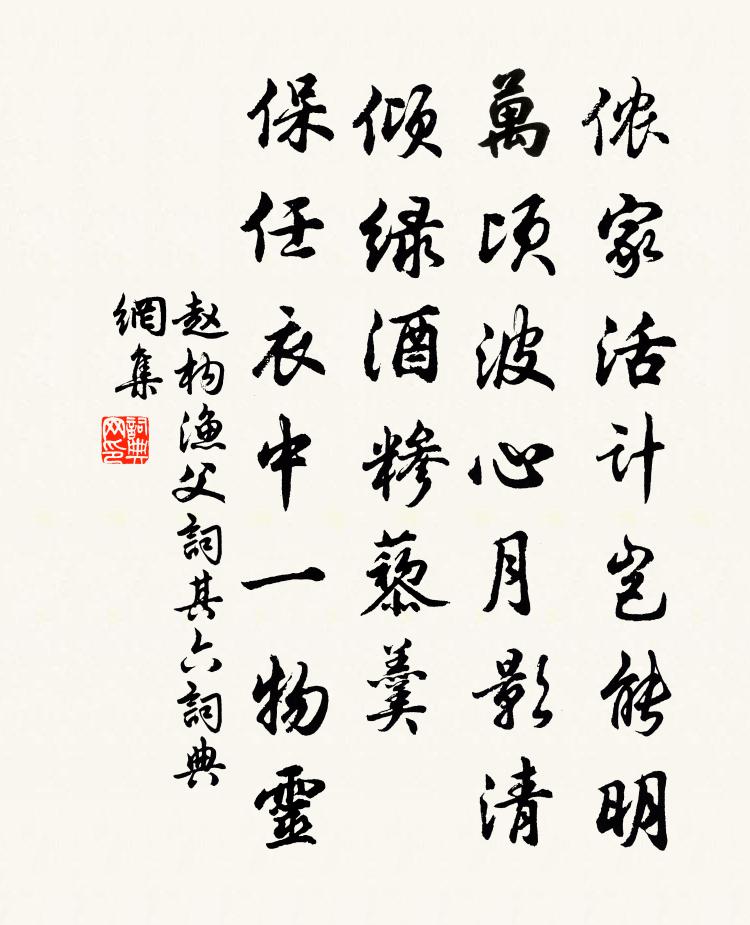 侬家活计岂能明
萬顷波心月影清
倾绿酒糁藜羹
保任衣中一物靈
赵构渔父詞其六詞典
網集
詞典網印